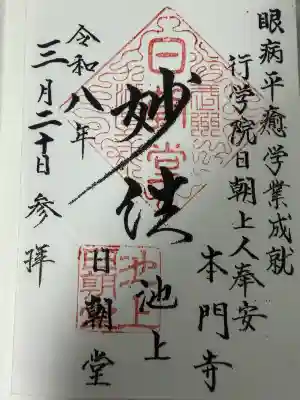 眼病平癒学業成就
行学院日朝上人奉安
本門寺
妙法
池上
日朝堂
令和八年
三月二十日参拝